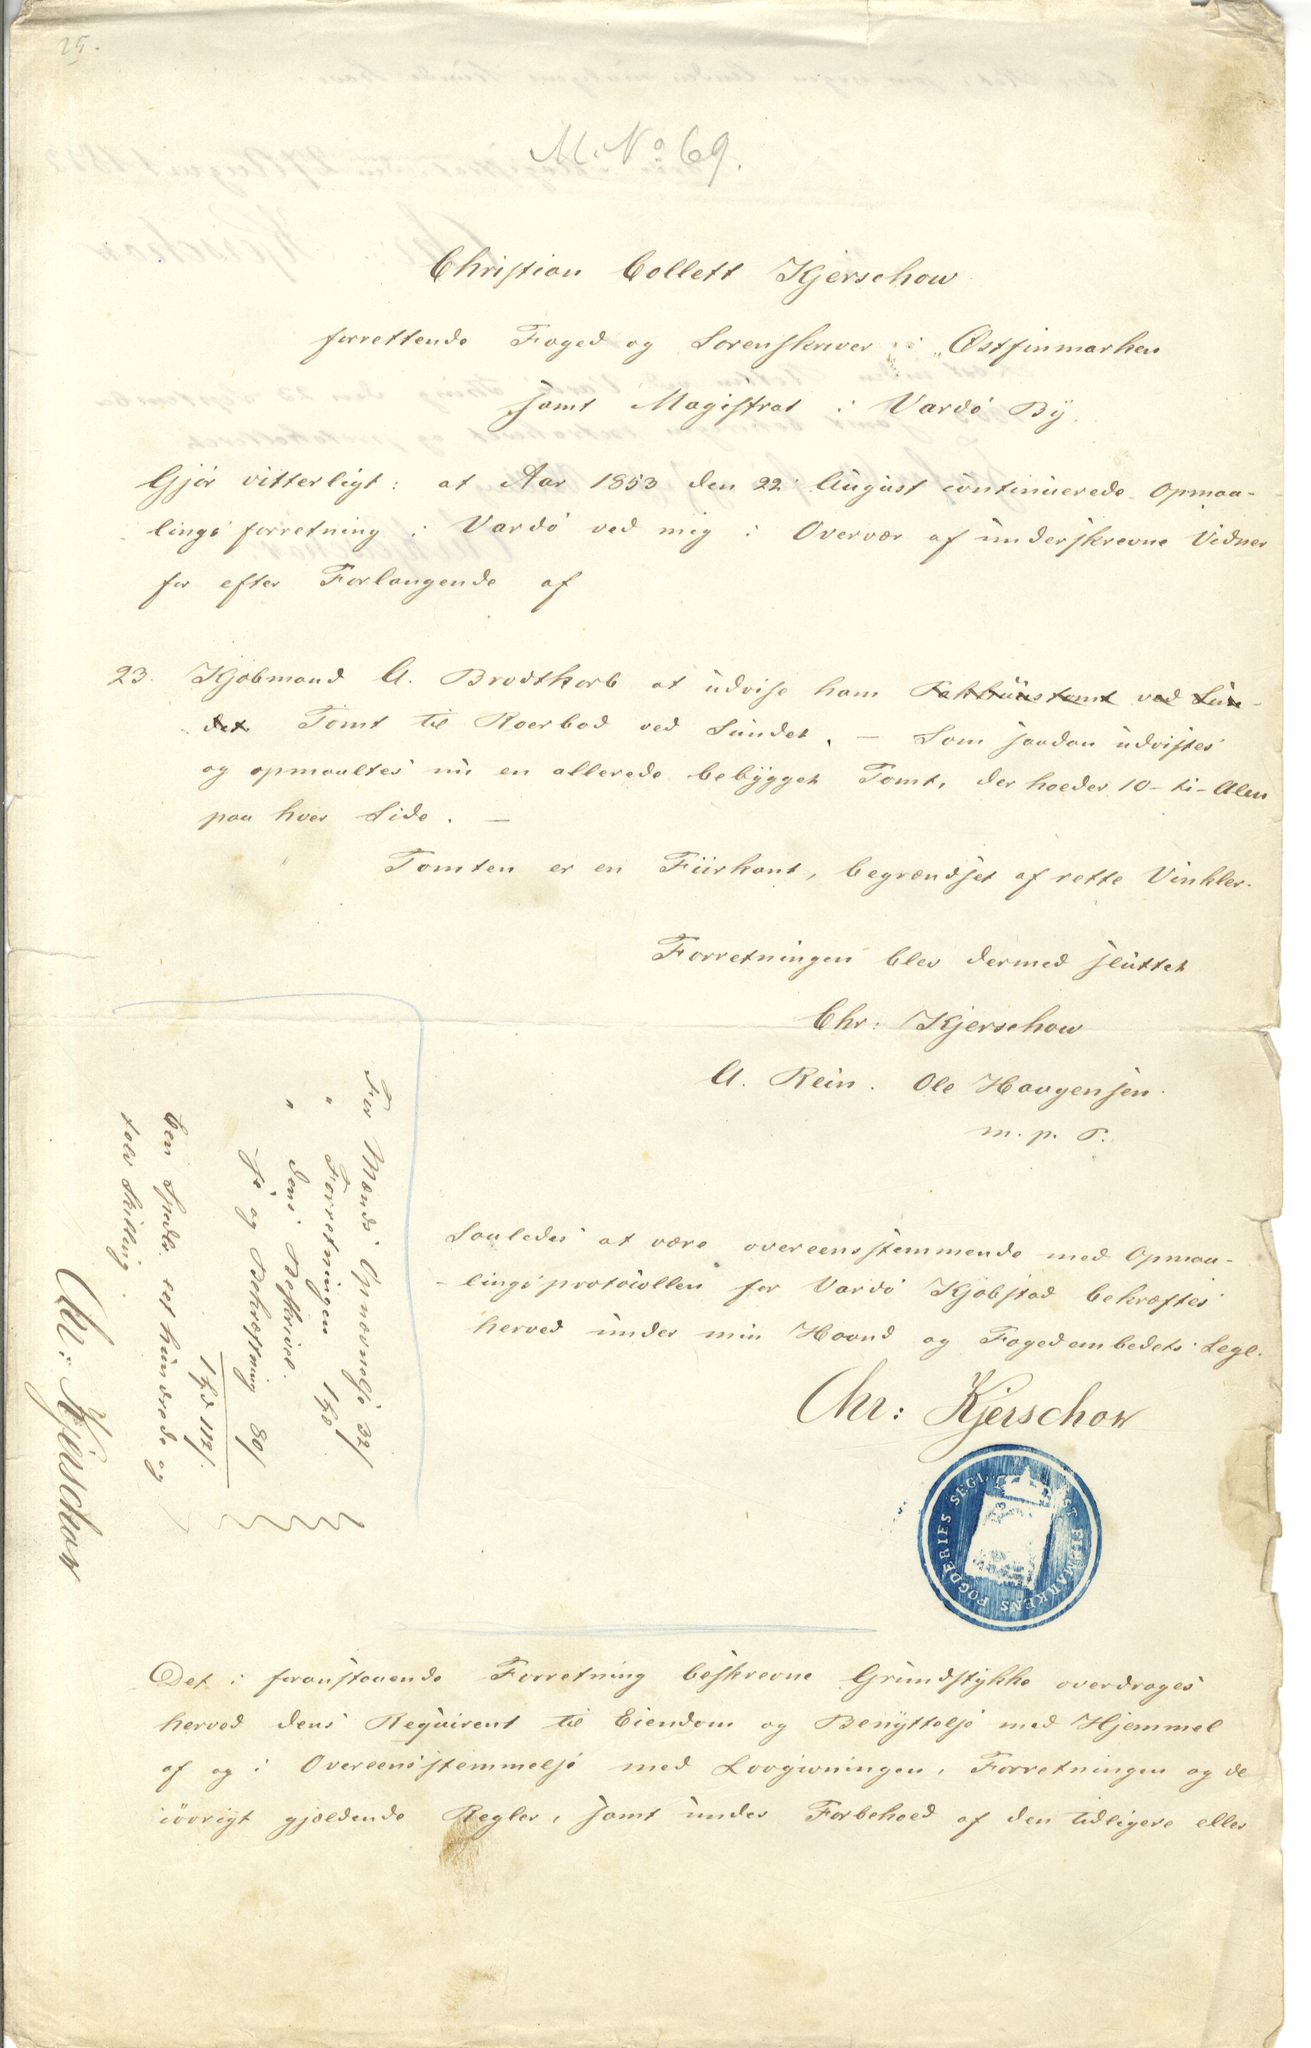 25.
M. No 69.
Christian Collett Kjerschow
forrettende Foged og Sorenskriver i Østfinmarken
samt Magistrat i Vardö By.
Gjör vitterligt: at Aar 1853 den 22 August continuerede Opmaa-
lings forretning i Vardö ved mig i Overvær af underskrevne Vidner
for efter Forlangende af
23. Kjöbmand A. Brodtkorb at udvise ham Pakhuustomt ved Sun-
det Tomt til Roerbod ved Sundet. — Som saadan udvistes
og opmaaltes nu en allerede bebygget Tomt, der holder 10 - ti - Alen
paa hver Side. —
Tomten er en Fiirkant, begrændset af rette Vinkler.
Forretningen blev dermed sluttet
Chr: Kjerschow
A. Rein. Ole Haagensen.
m. p. P.
Saaledes at være overeensstemmende med Opmaa-
-lingsprotocollen for Vardö Kjöbstad bekræftes
herved under min Haand og Fogedembedets Segl.
Chr: Kjerschow
ØST FINMARKENS FOGDERIES SEGL
For Mænds Opnævnelse 32/
" Forretningen 1
" dens Beskrivel.
og Bekræftning 80/
1 112/.
Een Spdlr. eet hundrede og
tolv Skilling
Chr: Kjerschow
Det i foranstaaende Forretning beskrevne Grundstykke overdrages
herved dens Reqvirent til Eiendom og Benyttelse med Hjemmel
af og i Overeensstemmelse med Lovgivningen, Forretningen og de
iövrigt gjældende Regler, samt under Forbehold af den tidligere eller